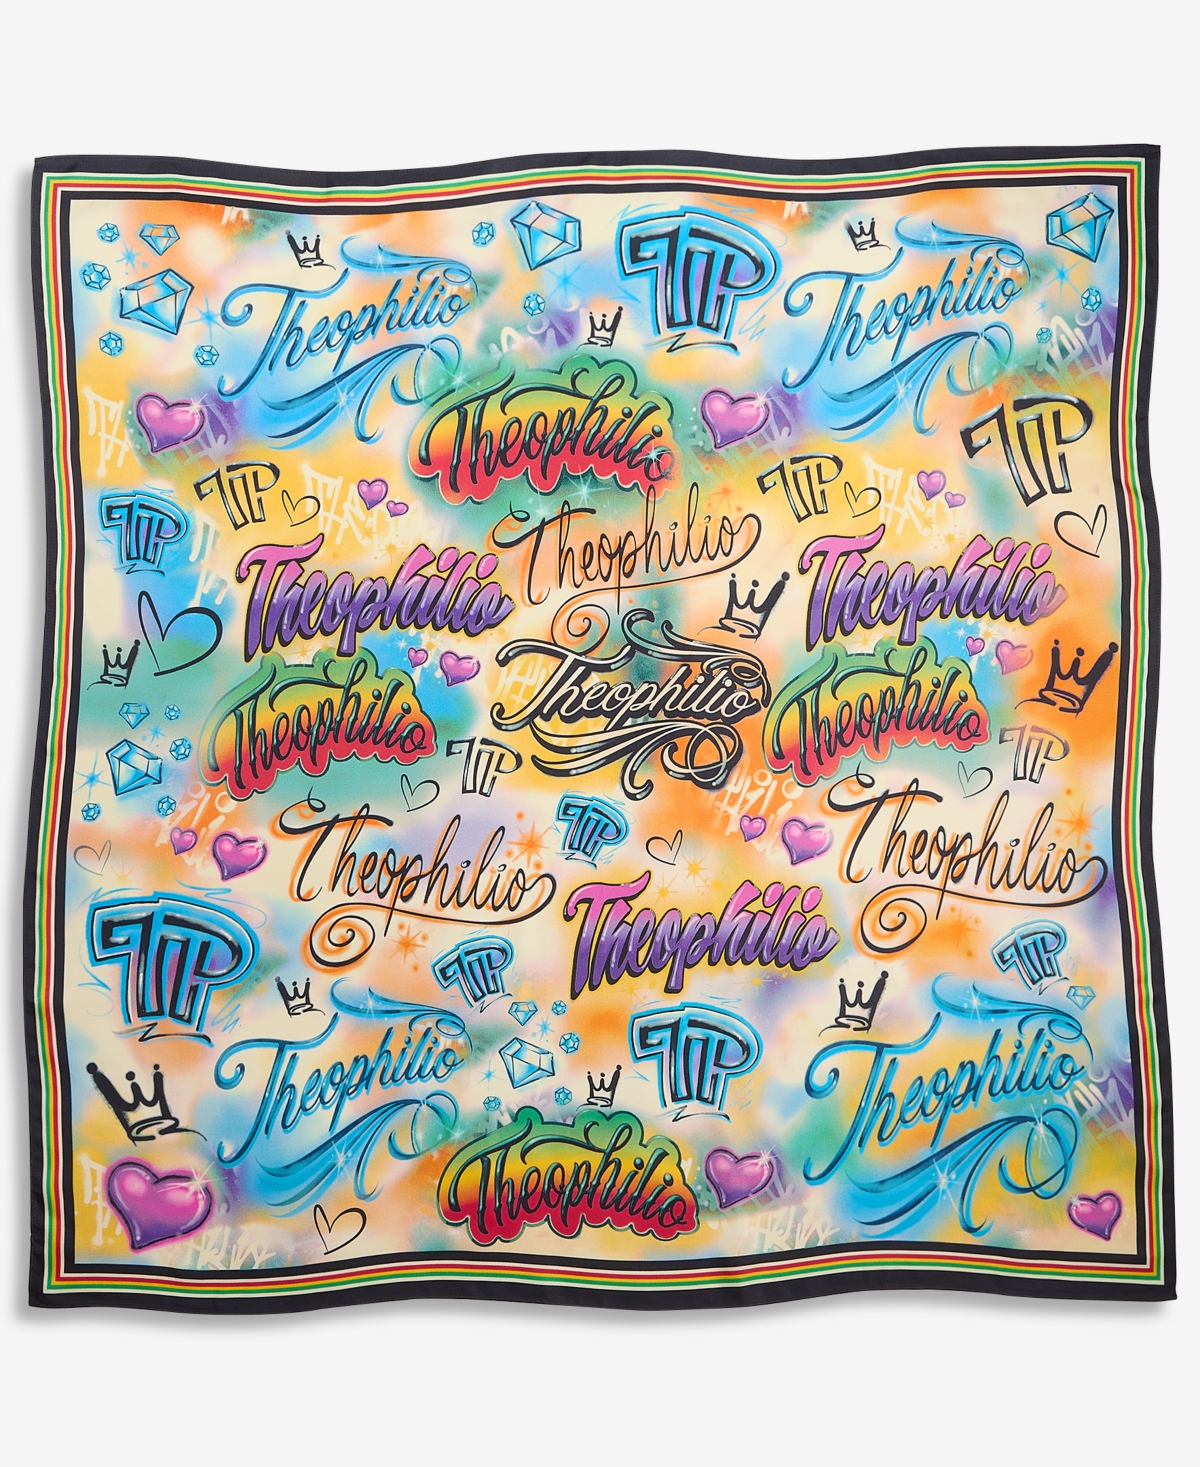 Theophilio
TP
Theophilio
Theophilio
TP
TP
TP
TP
Theophilio
Theophilio
Theophilio
Theophilio
Theophilio
Theophilio
TP
TP
Theophilio
Theophilio
TP
Theophilio
TP
TP
TP
Theophilio
TP
Theophilio
Theophilio